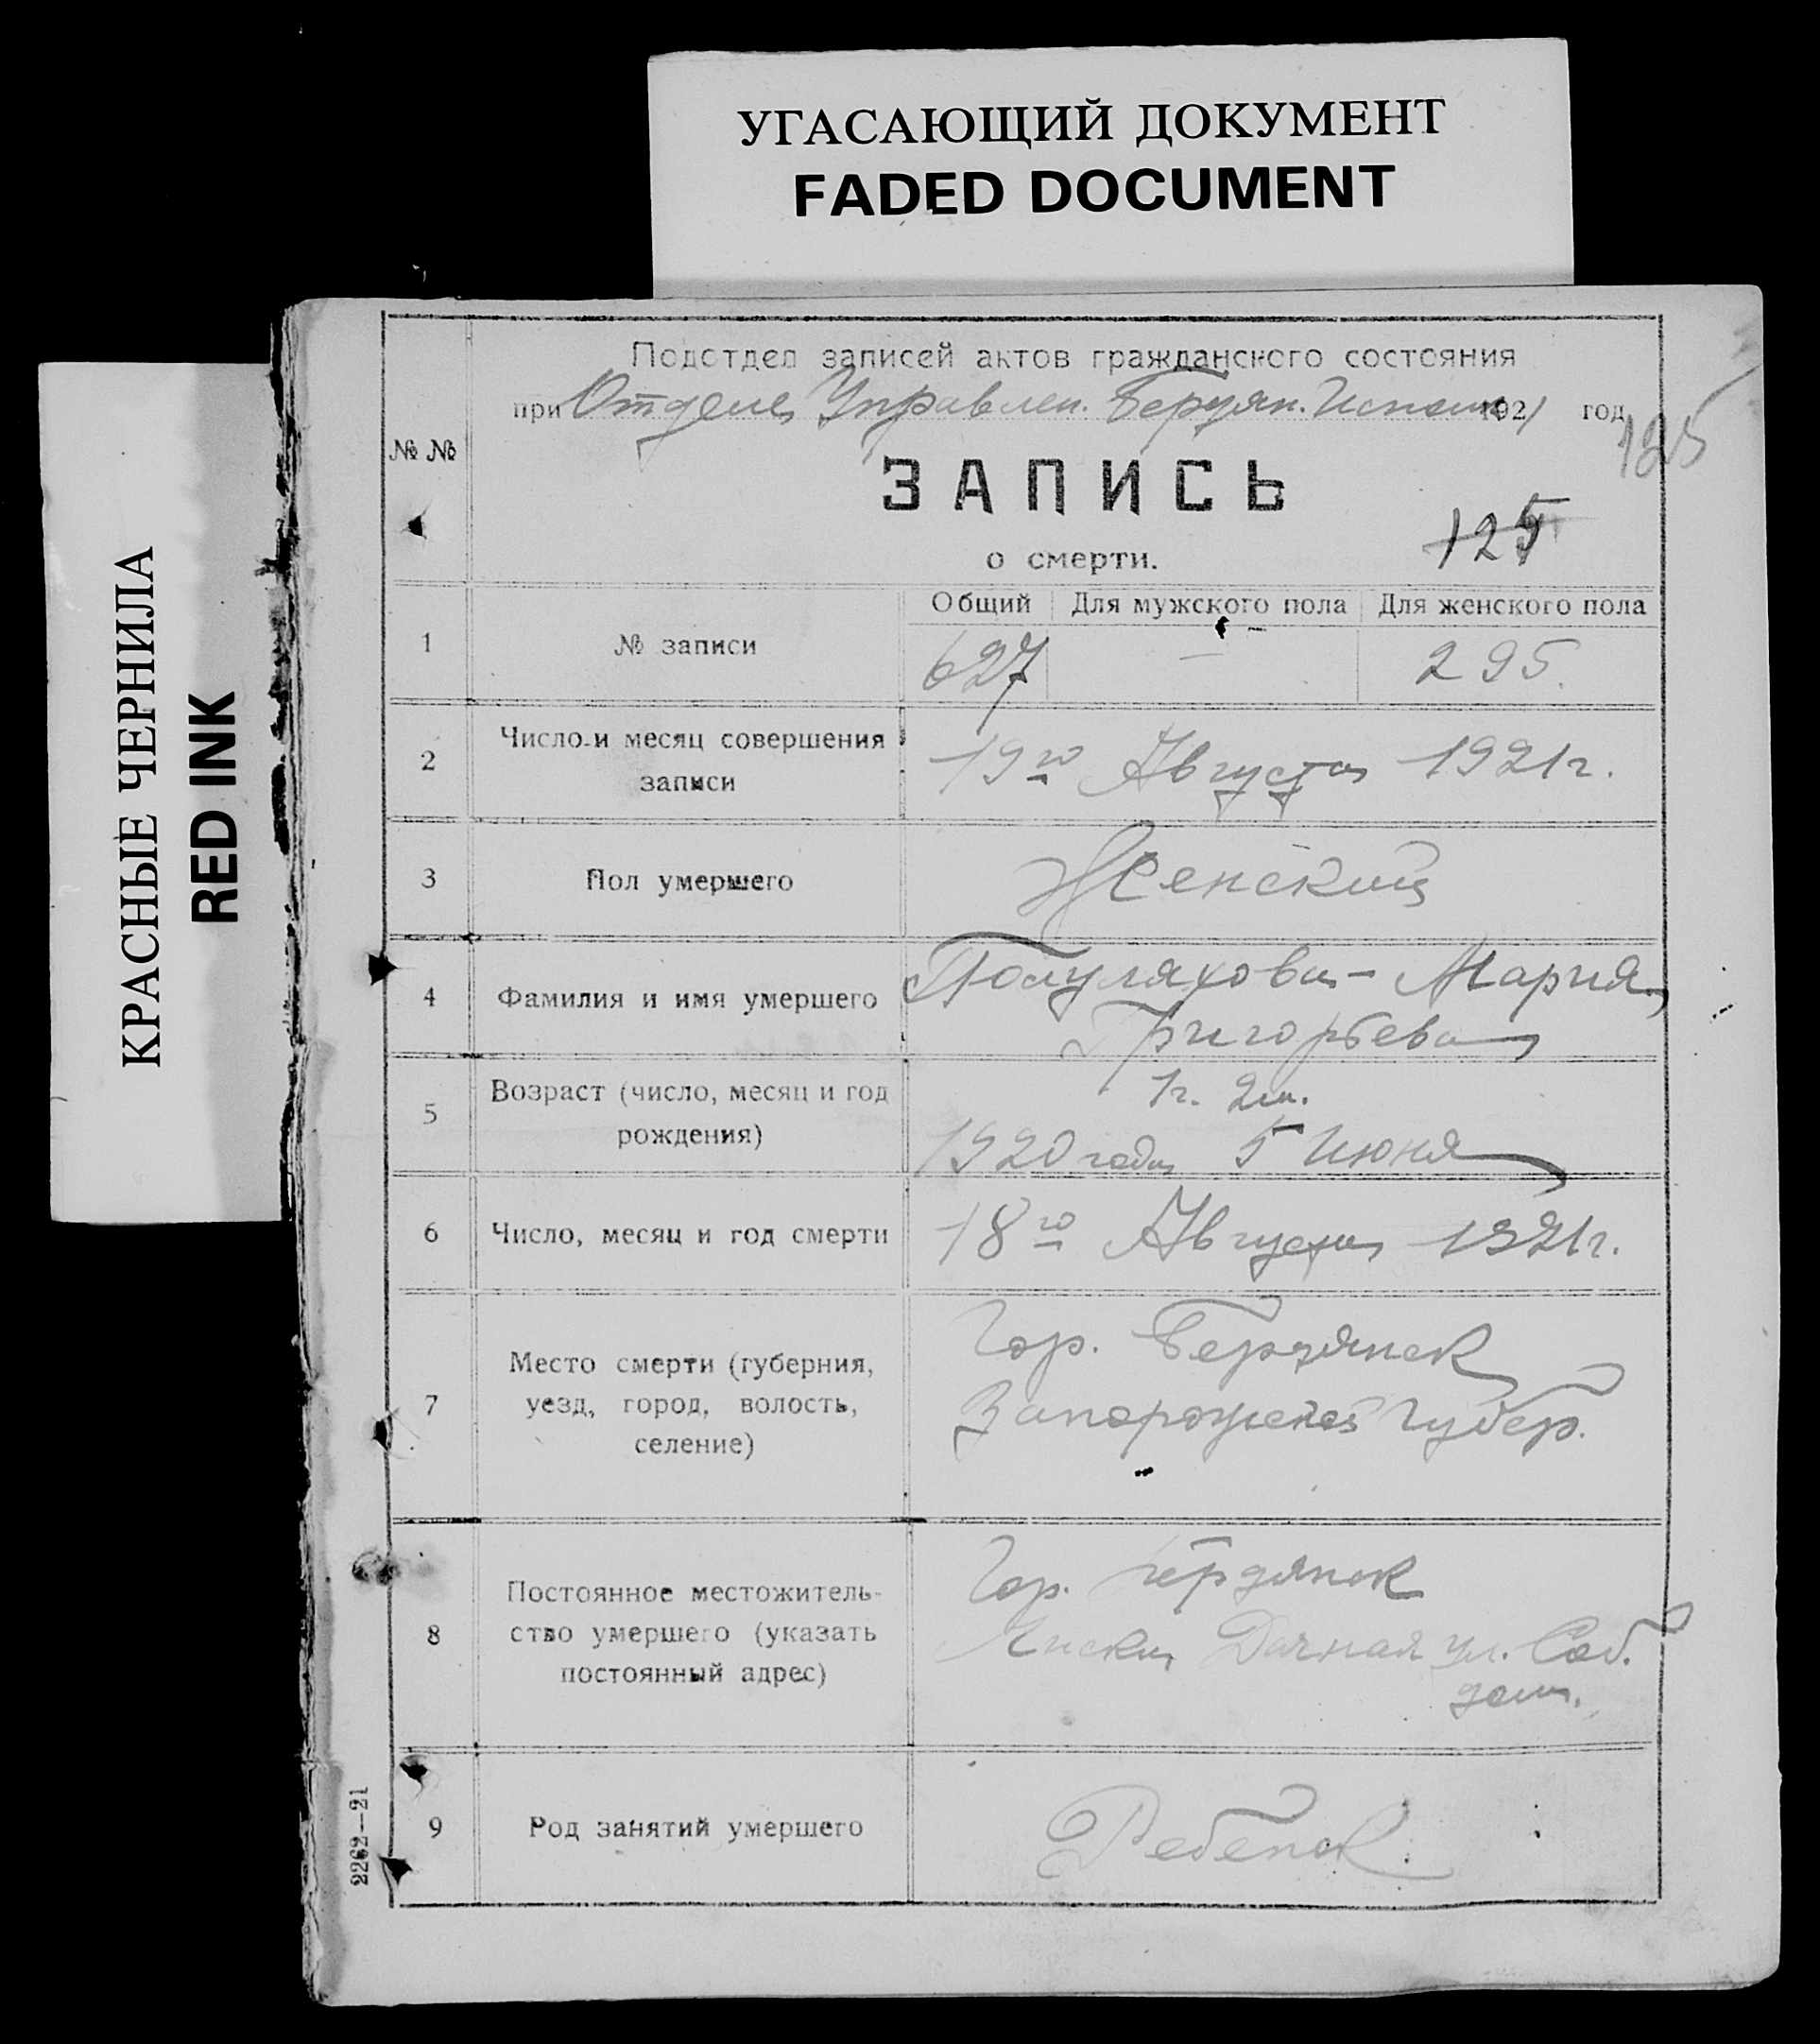 УГАСАЮЩИЙ ДОКУМЕНТ
FADED DOCUMENT
КРАСНЫЕ ЧЕРНИЛА
RED INK
Подотдел записей актов гражданского состояния
при Отделе Управлен. Бердян. 1921 год
125
№ №
ЗАПИСЬ
о смерти.
125
Общий Для мужского пола Для женского пола
1 № записи 627 — 295.
2 Число и месяц совершения записи 19го Августа 1921г.
3 Пол умершего Женский
4 Фамилия и имя умершего Полуляхова - Мария
Григорьева
5 Возраст (число, месяц и год рождения) 1г. 2м.
1920 года 5 Июня
6 Число, месяц и год смерти 18го Августа 1921г.
7 Место смерти (губерния, уезд, город, волость, селение) Гор. Бердянск
Запорожской Губер.
8 Постоянное местожительство умершего (указать постоянный адрес) Гор. Бердянск
Лиски Дачная ул. Соб.
дом.
9 Род занятий умершего Ребенок
2262—21